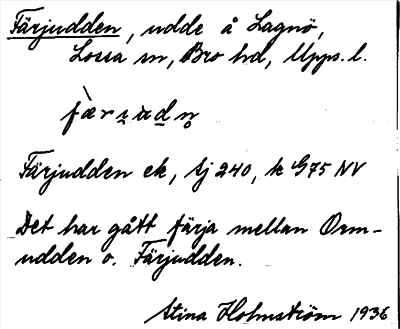 Färjudden, udde å Lagnö,
Lossa sn, Bro hd, Upps. l.
Färjudden ek, tj 240, k G75 NV
Det har gått färja mellan Orm-
udden o. Färjudden.
Stina Holmström 1936